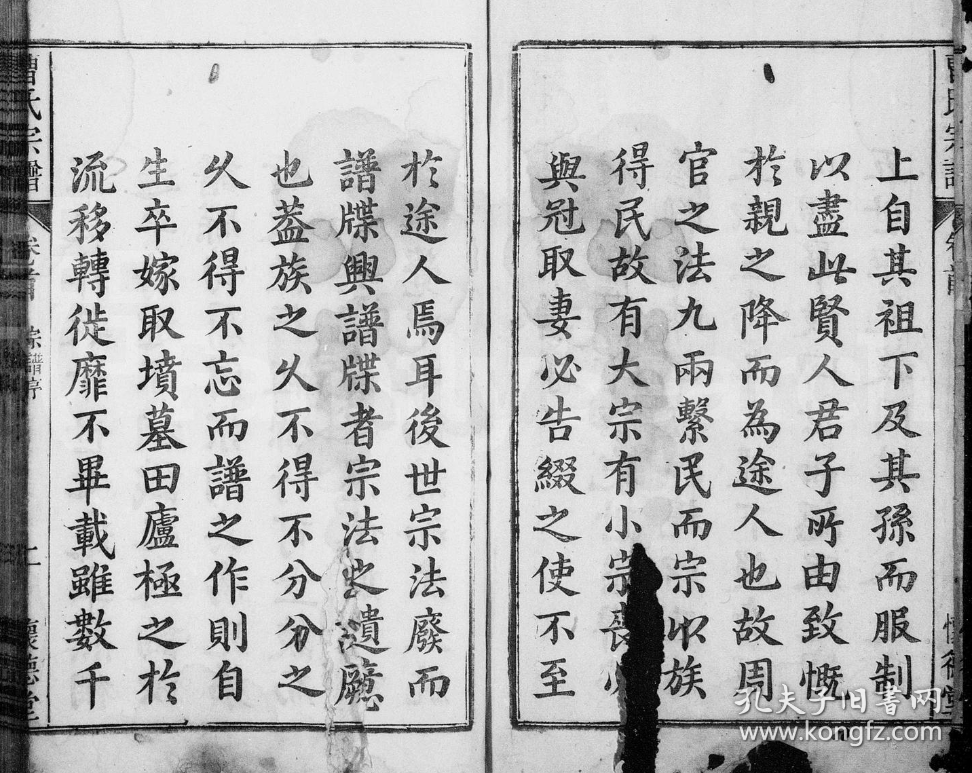 上自其祖下及其孫而服制
以盡此賢人君子所由致慨
於親之降而為途人也故周
官之法九兩繫民而宗以族
得民故有大宗有小宗喪
與冠取妻必告綴之使不至
於途人焉耳後世宗法廢而
譜牒興譜牒者宗法之遺
也葢族之乆不得不分分之
乆不得不忘而譜之作則自
生卒嫁取墳墓田廬極之於
流移轉徙靡不畢載雖數千
曹氏宗譜
卷之首
宗譜序
懷德堂
孔夫子旧书网
www.kongfz.com